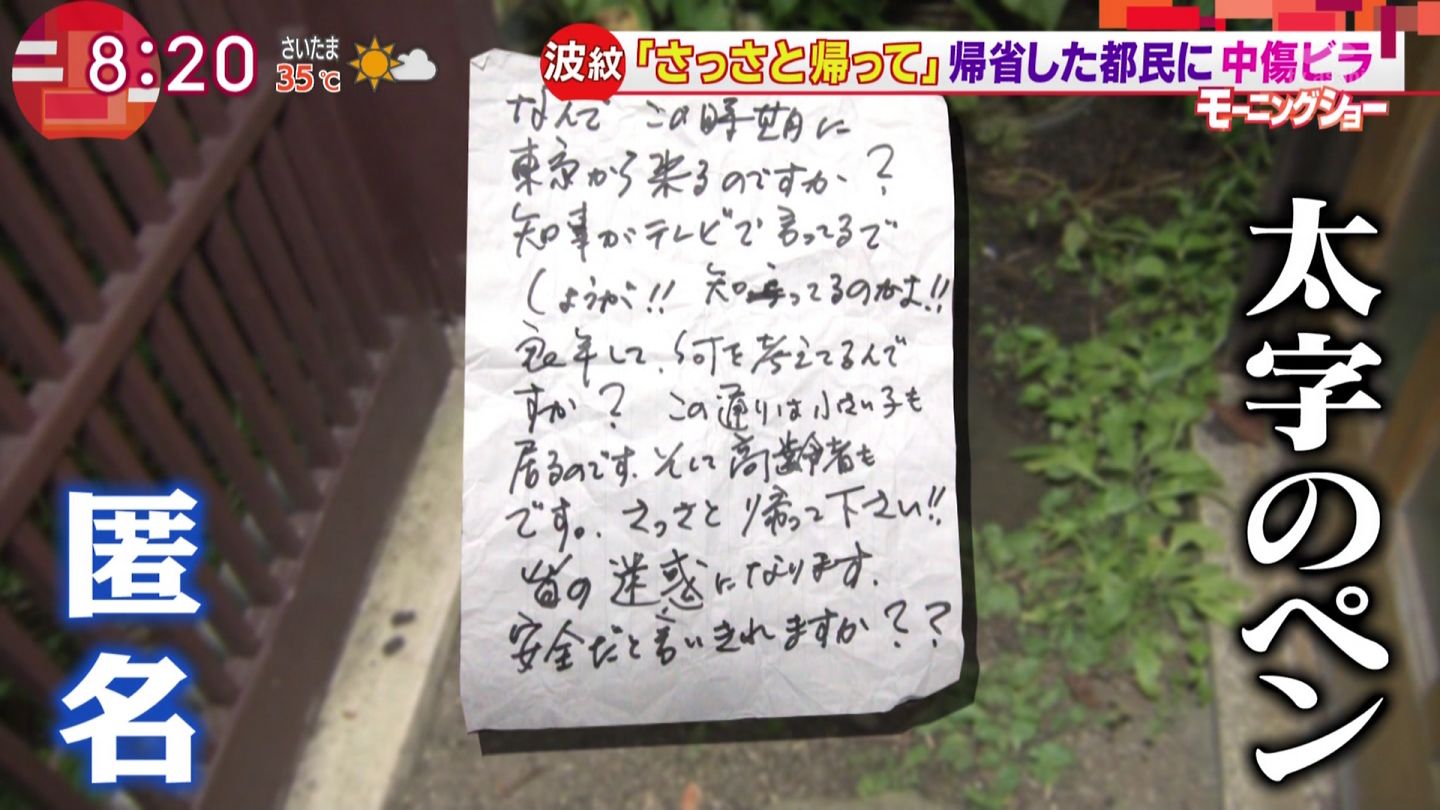 8:20
さいたま
35℃
波紋 「さっさと帰って」帰省した都民に 中傷ビラ
モーニングショー
なんで この時期に
東京から来るのですか?
知事がテレビで言ってるで
しょうが!! 知ってるのかよ!!
良い年して、何を考えてるんで
すか? この通りは小さい子も
居るのです。そして高齢者も
です。さっさと帰って下さい!!
皆の迷惑になります。
安全だと言いきれますか??
太字のペン
匿名